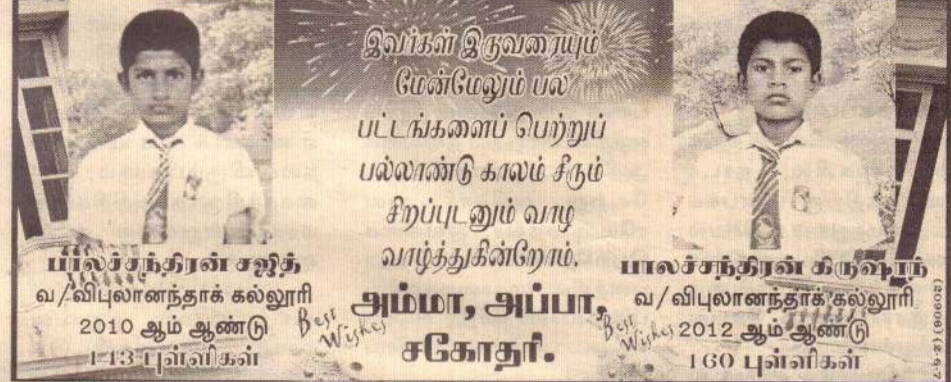 இவர்கள் இருவரையும்
மேன்மேலும் பல
பட்டங்களைப் பெற்றுப்
பல்லாண்டு காலம் சீரும்
சிறப்புடனும் வாழ
வாழ்த்துகின்றோம்.
அம்மா, அப்பா,
சகோதரி.
பாலச்சந்திரன் சஜித்
வ/விபுலானந்தாக் கல்லூரி
2010 ஆம் ஆண்டு
143 புள்ளிகள்
Best
Wishes
பாலச்சந்திரன் கிருஷாந்
வ/விபுலானந்தாக் கல்லூரி
2012 ஆம் ஆண்டு
160 புள்ளிகள்
Best
Wishes